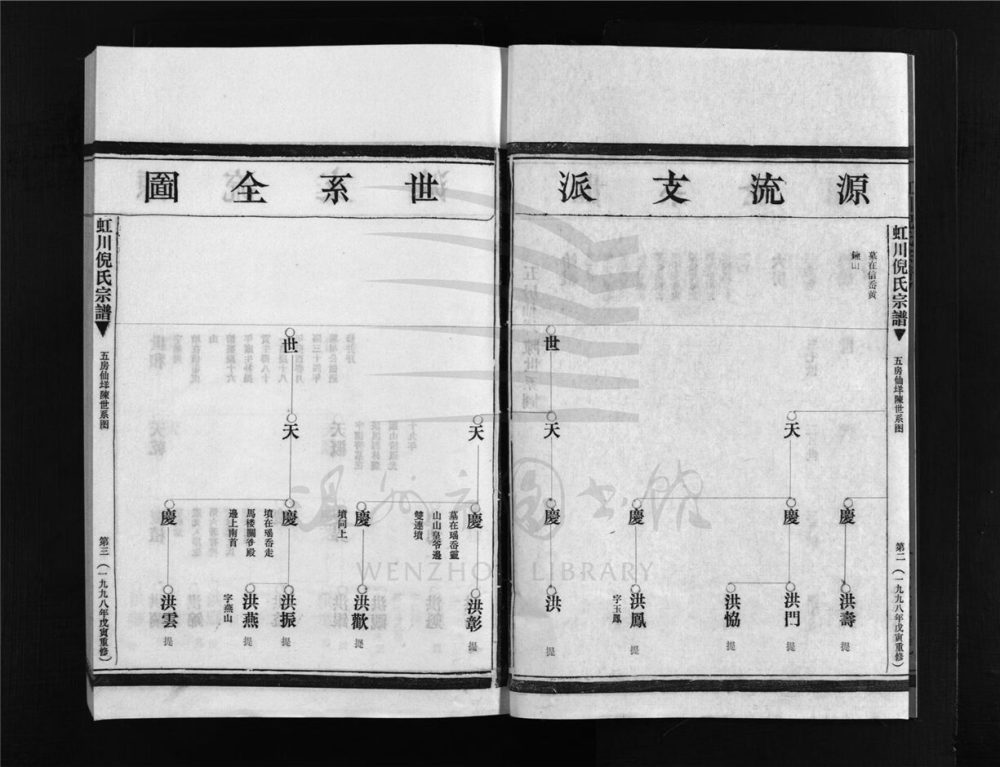 源流支派
虹川倪氏宗譜
五房仙垟陳世系图
第二(一九九八年戊寅重修)
墓在信岙黄
鍊山
慶
洪壽
提
天
慶
洪門
提
洪恊
提
慶
洪鳳
字玉鳳
提
世
天
慶
洪
提
世系全圖
天
慶
墓在瑶岙靈
山山皇爷邊
雙連墳
洪彰
提
慶
墳同上
洪歡
提
世
天
慶
墳在瑶岙走
馬楼關爷殿
邊上南首
洪振
提
洪燕
字燕山
提
慶
洪雲
提
虹川倪氏宗譜
五房仙垟陳世系图
第三(一九九八年戊寅重修)
WENZHOU LIBRARY